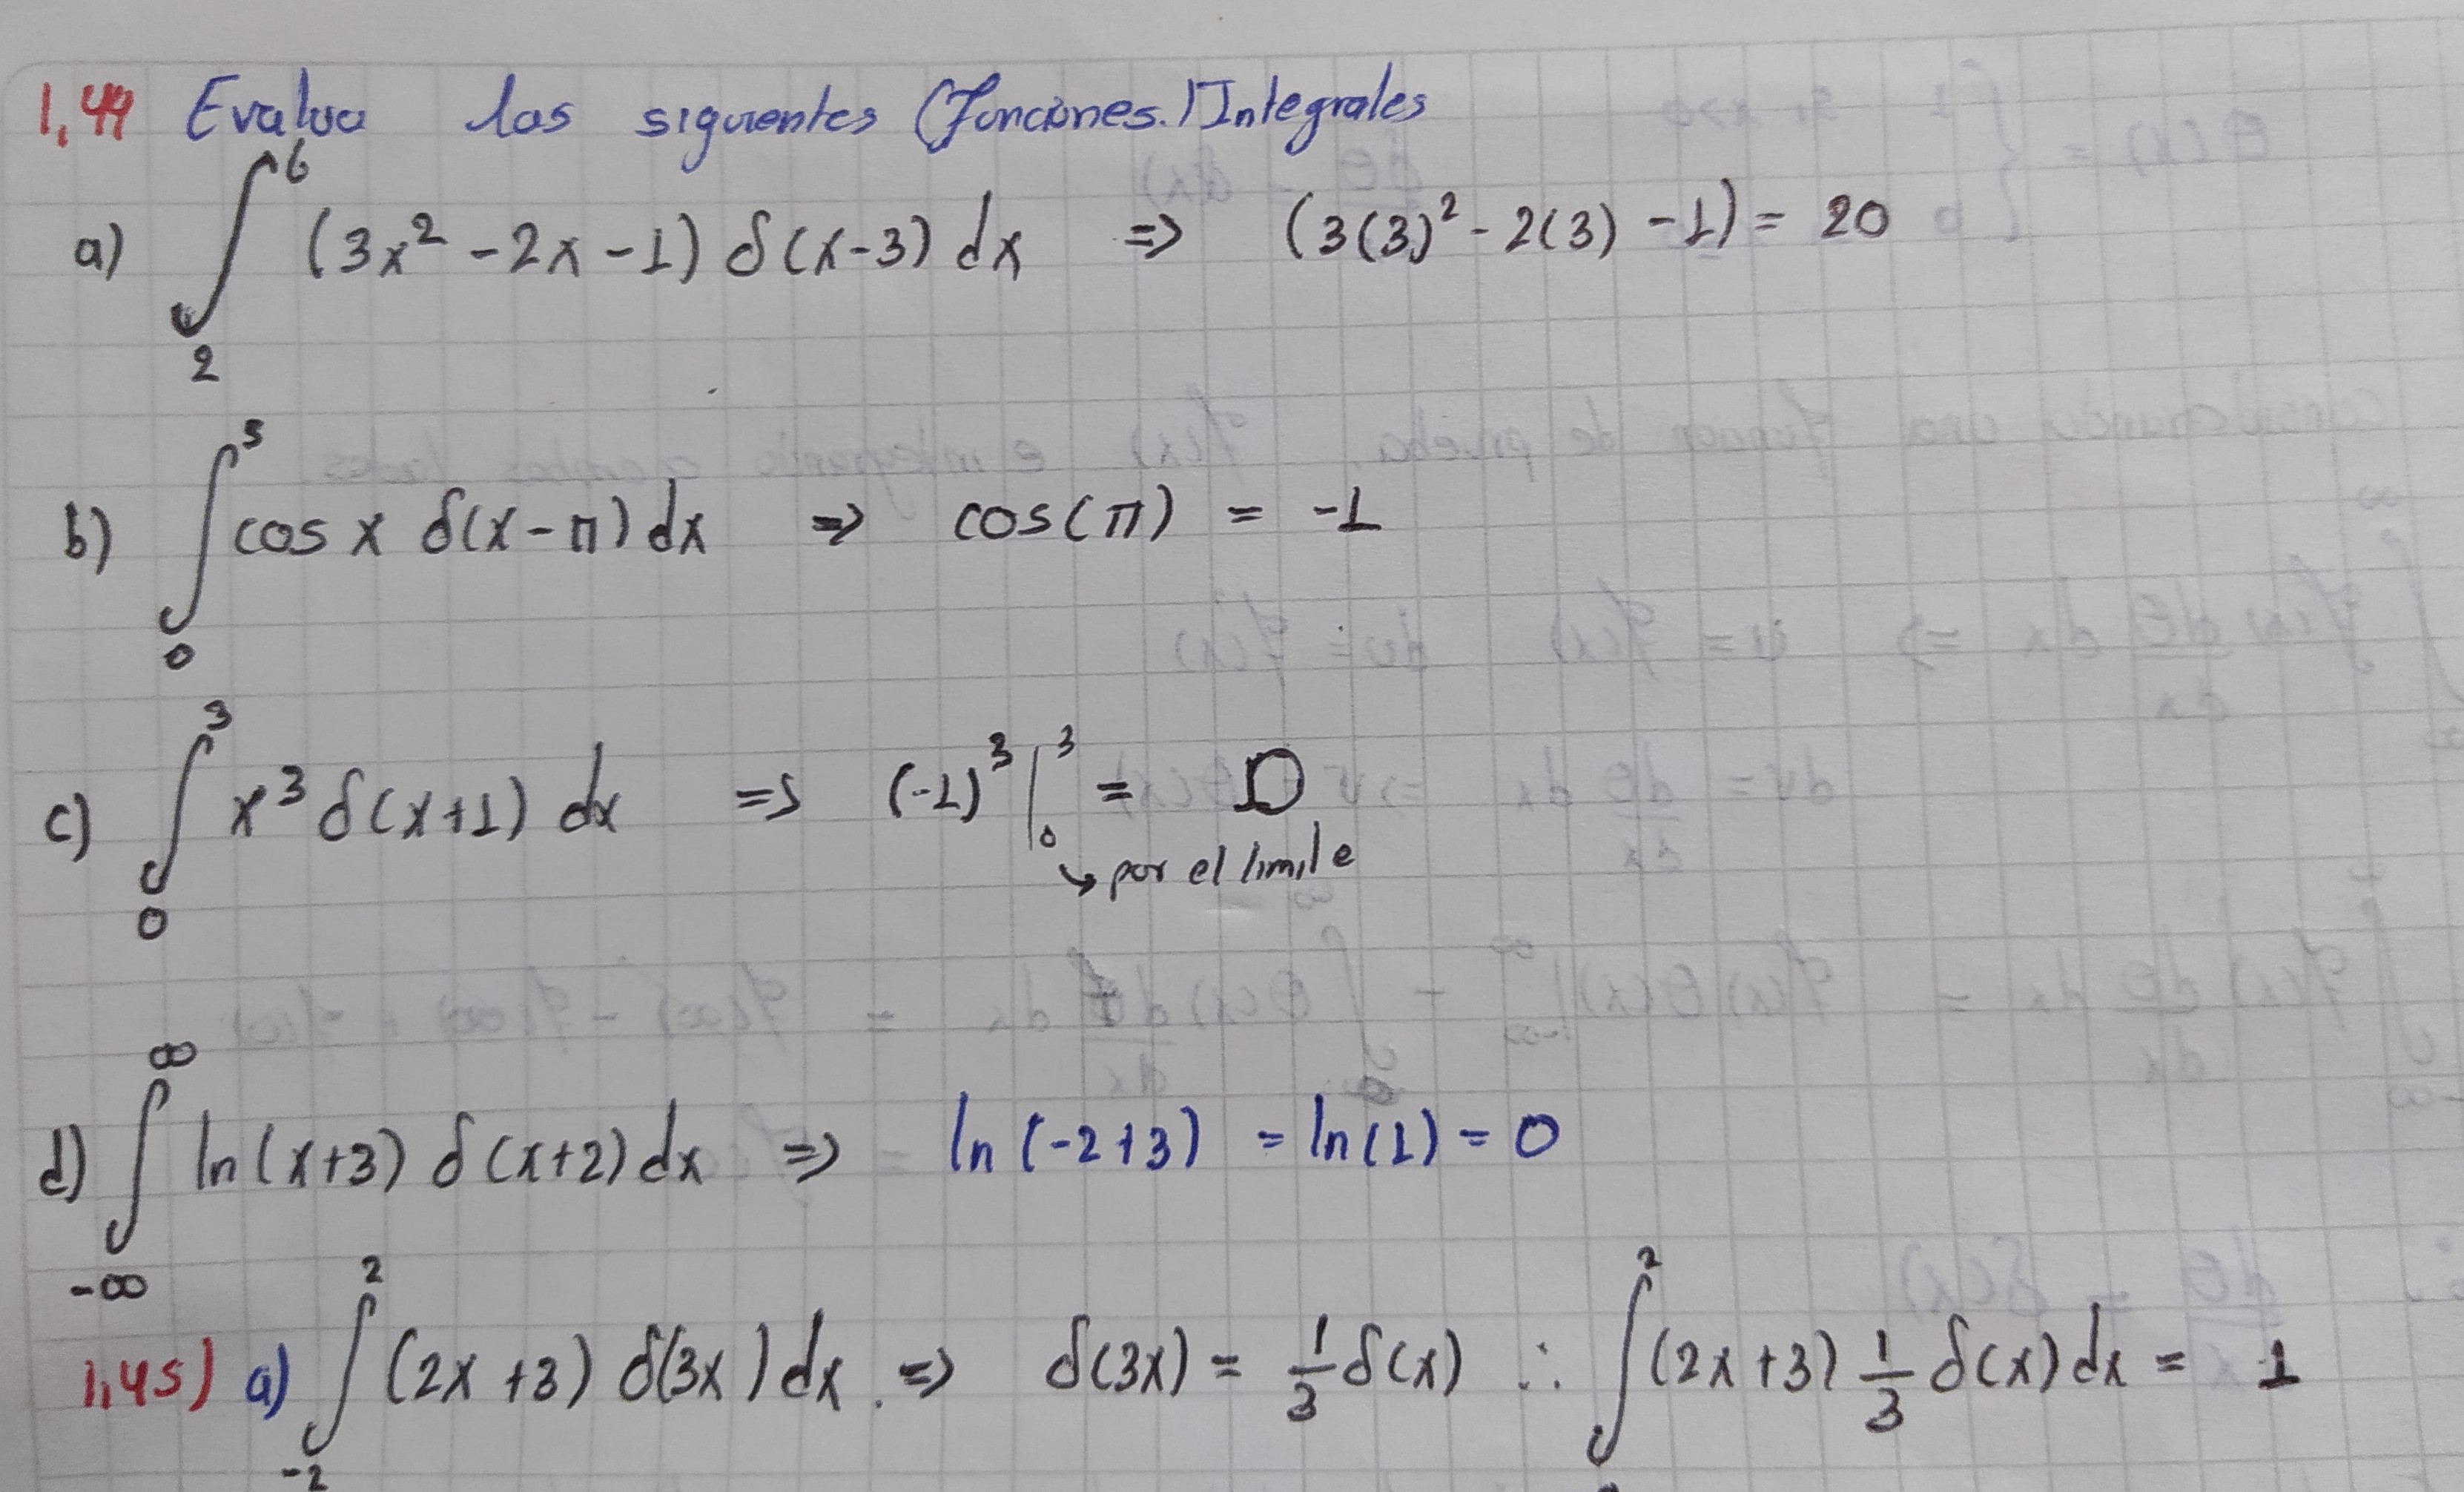 1,44 Evalua las siguientes (funciones.) Integrales
a) ∫₂⁶ (3x² - 2x - 1) δ(x-3) dx ⇒ (3(3)² - 2(3) - 1) = 20
b) ∫₀⁵ cos x δ(x-π) dx ⇒ cos(π) = -1
c) ∫₀³ x³ δ(x+1) dx ⇒ (-1)³ |₀³ = 0
↳ por el limite
d) ∫₋∞^∞ ln(x+3) δ(x+2) dx ⇒ ln(-2+3) = ln(1) = 0
1,45) a) ∫₋₂² (2x+3) δ(3x) dx. ⇒ δ(3x) = 1/3 δ(x) ∴ ∫² (2x+3) 1/3 δ(x) dx = 1